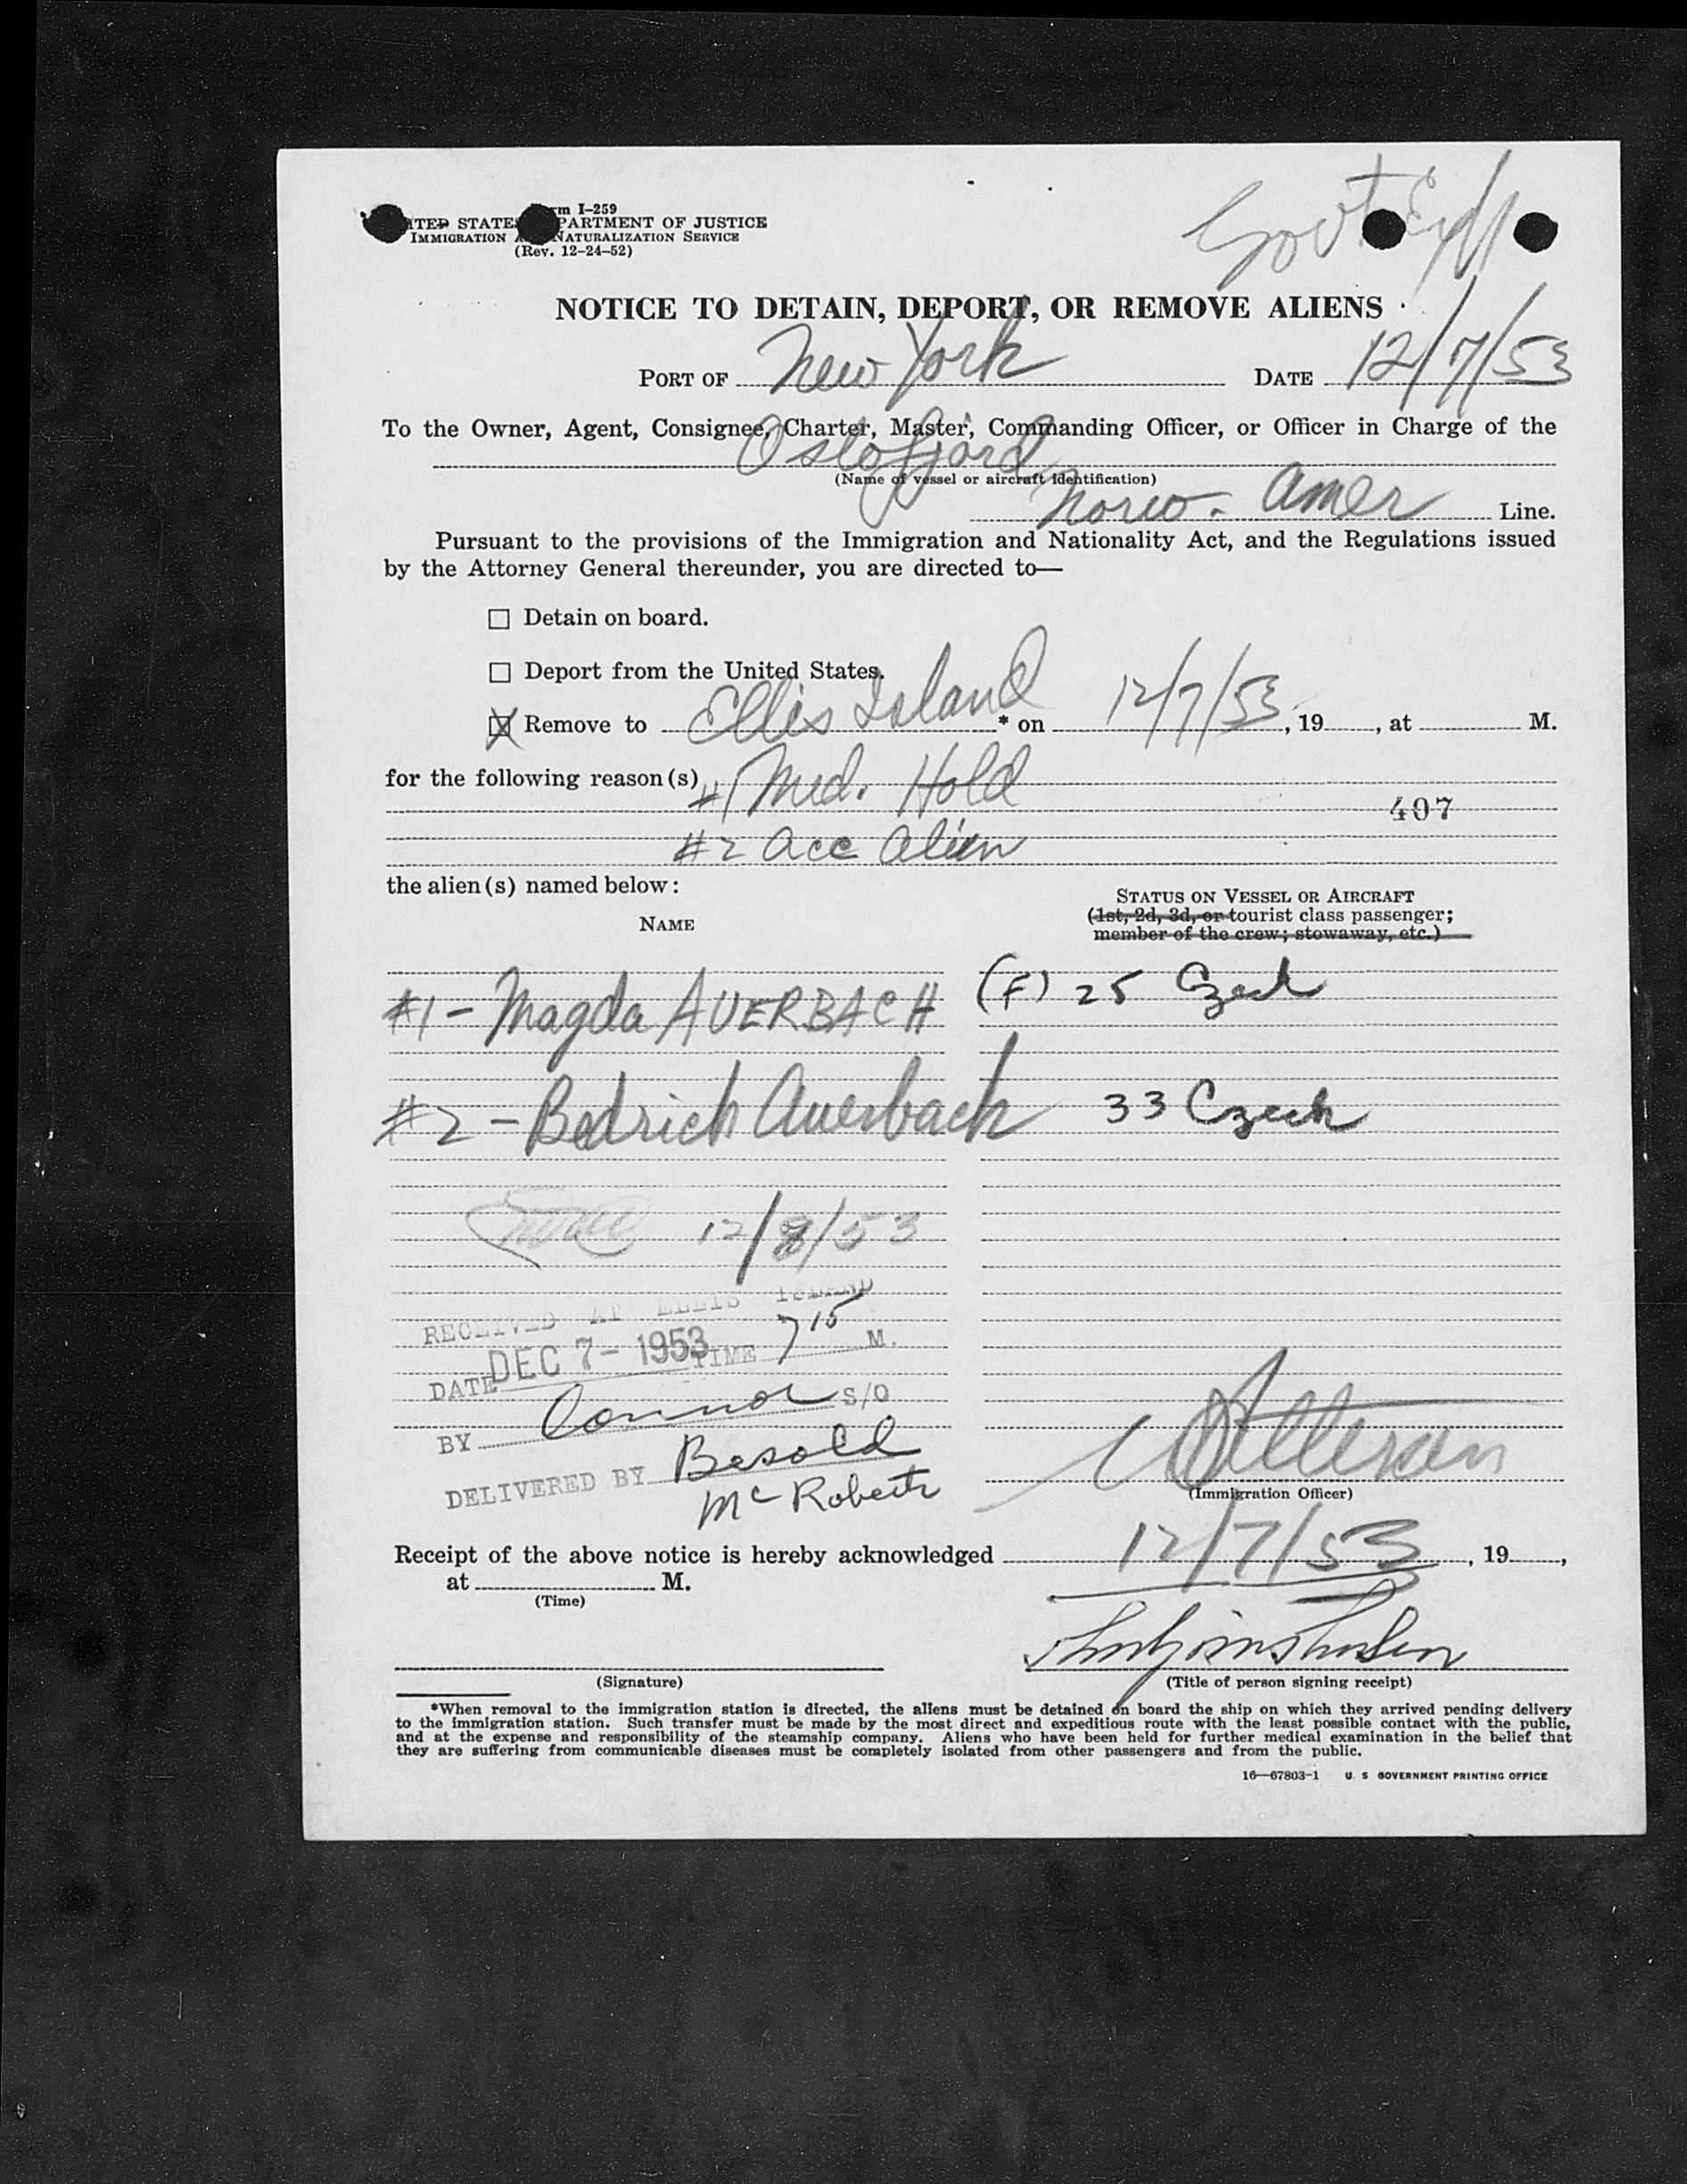 Form I-259
UNITED STATES DEPARTMENT OF JUSTICE
IMMIGRATION AND NATURALIZATION SERVICE
(Rev. 12-24-52)
Gov't
NOTICE TO DETAIN, DEPORT, OR REMOVE ALIENS
PORT OF New York DATE 12/7/53
To the Owner, Agent, Consignee, Charter, Master, Commanding Officer, or Officer in Charge of the
Oslofjord
(Name of vessel or aircraft identification)
Norw. Amer Line.
Pursuant to the provisions of the Immigration and Nationality Act, and the Regulations issued
by the Attorney General thereunder, you are directed to—
☐ Detain on board.
☐ Deport from the United States.
☒ Remove to Ellis Island * on 12/7/53, 19, at M.
for the following reason(s) #1 Med. Hold
407
#2 Acc Alien
the alien(s) named below:
STATUS ON VESSEL OR AIRCRAFT
NAME
(1st, 2d, 3d, or tourist class passenger;
member of the crew; stowaway, etc.)
#1 - Magda AUERBACH (F) 25 Czech
#2 - Bedrich Auerbach 33 Czech
12/8/53
RECEIVED AT ELLIS ISLAND
DATE DEC 7- 1953 TIME 7 15 M.
BY Connor S/O
DELIVERED BY Besold
McRoberts
(Immigration Officer)
Receipt of the above notice is hereby acknowledged 12/7/53, 19,
at M.
(Time)
(Signature) (Title of person signing receipt)
*When removal to the immigration station is directed, the aliens must be detained on board the ship on which they arrived pending delivery
to the immigration station. Such transfer must be made by the most direct and expeditious route with the least possible contact with the public,
and at the expense and responsibility of the steamship company. Aliens who have been held for further medical examination in the belief that
they are suffering from communicable diseases must be completely isolated from other passengers and from the public.
16—67803-1 U. S GOVERNMENT PRINTING OFFICE